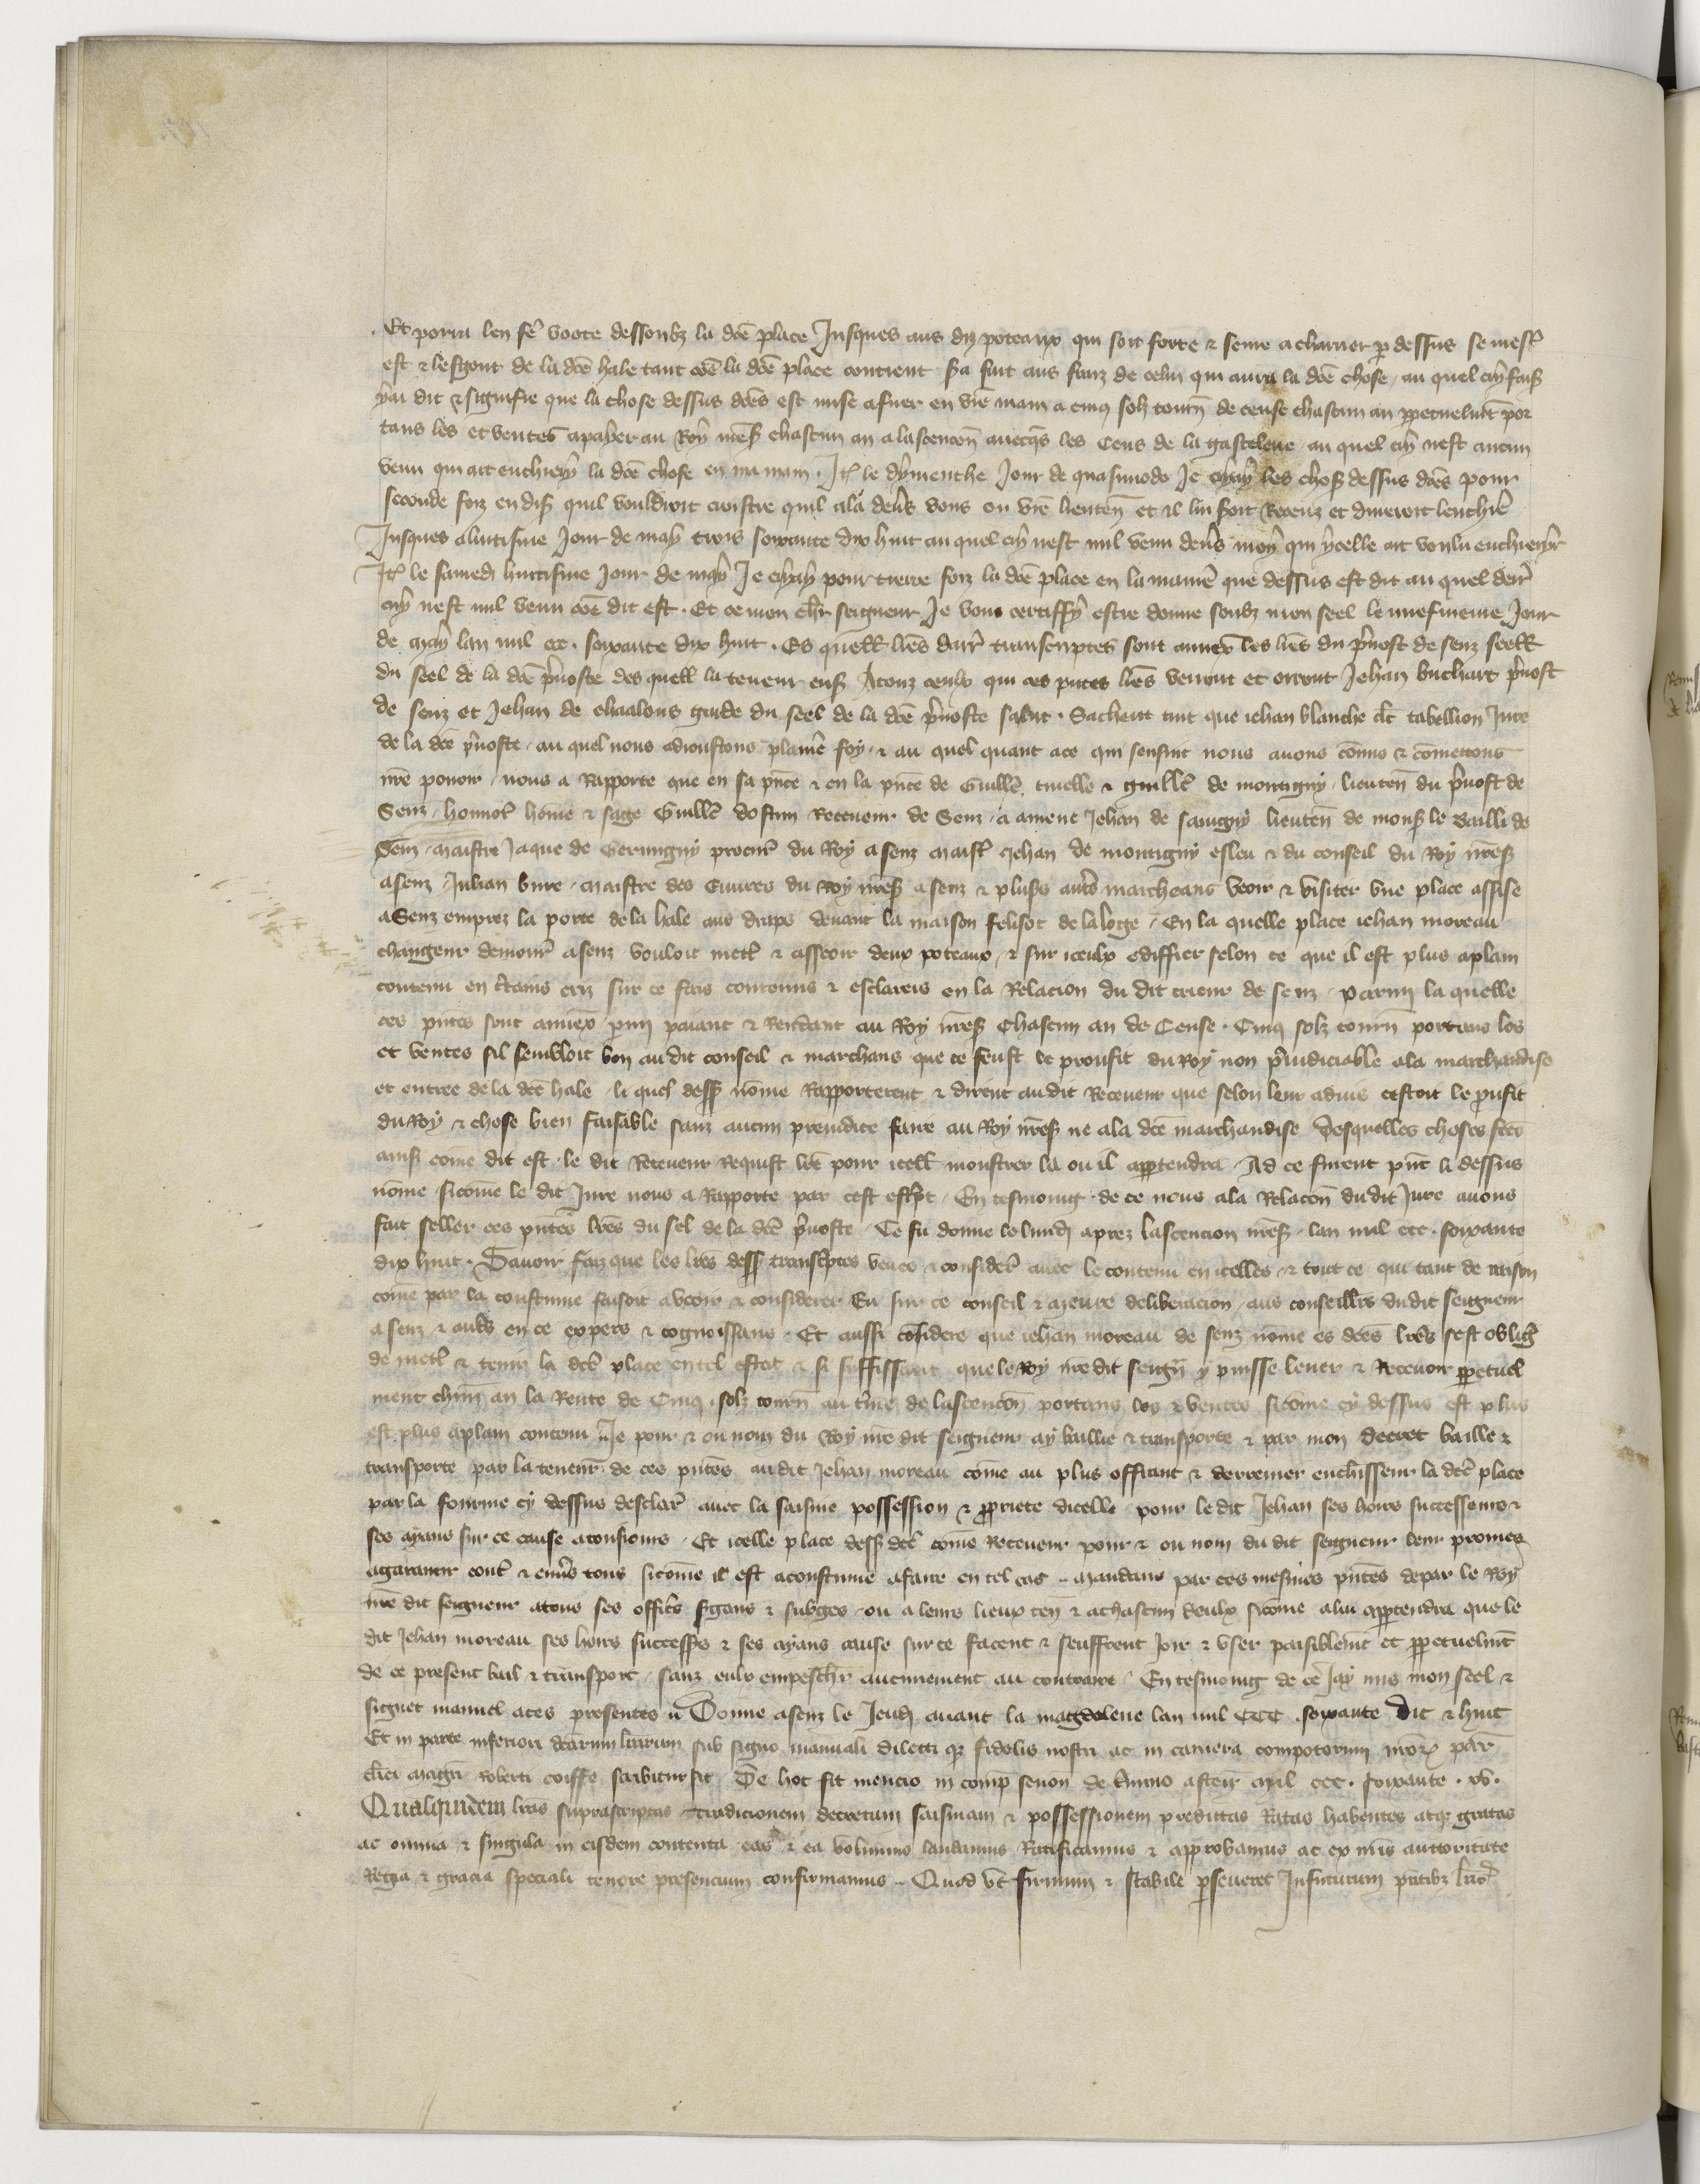 Et porra len fe voote dessoubz la dce place Jusques aus diz poteaux qui soit forte & ferme a charier p dessus se mest
est & lesgout de la dce hale tant coe la dce place contient sa fait aus fraiz de celui qui aura la dce chose au quel cry fais
jai dit & signifie que la chose dessus dces est mise a fuer en vre main a cinq solz tourn de cense chascun an ppetuelmt por
tans les et ventes a paier au Roy nres chascun an a lascencon auecqs les Cens de la gastelerie au quel cry nest aucun
venu qui ait enchiery la dce chose en ma main Jt le dymenche Jour de quasimodo Je cryay les choses dessus dces pour
seconde foiz en dis quil vouldroit croistre quil ala deus vous ou vre lieuten et il lui seroit Receuz et dureroit lenchie
Jusques a luitisme Jour de may trois soixante dix huit au quel cry nest nul venu deus moy qui ycelle ait voulu encherir
Jt le samedi huitisme Jour de may Je cryay pour tierce foiz la dce place en la manie que dessus est dit au quel derr
cry nest nul venu coe dit est Et ce mon chr seigneur Je vous certiffy estre donne soubz mon seel le nuefuieme Jour
de may lan mil ccc soixante dix huit Es quell lres dair transcriptes sont annex les lres du pruost de senz seell
du seel de la dce pruoste des quell la teneur ensuit A touz ceulx qui ces pntes lres verront et orront Jehan buchart pruost
de senz et Jehan de chaalons garde du seel de la dce pruoste salut Sachent tuit que iehan blanche clc tabellion Jure
de la dce pruoste au quel nous adioustons plaine foy & au quel quant a ce qui sensuit nous auons comis & comettons
nre pouoir nous a Rapporte que en sa pnce & en la pnce de Guille truelle & guille de montigny lieuten du pruost de
Senz honnor home & sage Guille dostun Receueur de Senz a amene Jehan de sauigny lieuten de mons le bailli de
Senz maistre Jaque de Germigny procur du Roy a senz maist Jehan de montigny esleu & du conseil du Roy nres
a senz Julian bure maistre des euures du Roy nres a senz & pluss auts marcheans veoir & visiter vne place assise
a Senz emprez la porte de la hale aus draps deuant la maison felisot de la loge En la quelle place iehan moreau
changeur demour a senz vouloit mett & asseoir deux poteaux & sur iceulx ediffier selon ce que il est plus aplain
contenu en ctains criz sur ce fais contenus & esclarcis en la Relacion du dit crieur de senz parmi la quelle
ces pntes sont annex pmi paiant & Rendant au Roy nres Chascun an de Cense Cinq solz tourn portans los
et ventes sil sembloit bon au dit conseil & marchans que ce feust le proufit du Roy non pruidiciable a la marchandise
et entree de la dce hale li quel dess nome Rapporterent & dirent au dit Receueur que selon leur aduis cestoit le prufit
du Roy & chose bien faisable sanz aucun preiudice faire au Roy nres ne a la dce marchandise Desquelles choses fces
ainsi come dit est le dit Receueur Requist lre pour icell monstrer la ou il appertendra Ad ce furent pnt li dessus
nome sicome le dit Jure nous a Rapporte par cest escpt En tesmoing de ce nous a la Relacon du dit Jure auons
fait seller ces pntes lres du sel de la dce pruoste Ce fu donne le lundi aprez lascencion nres lan mil ccc soixante
dix huit Sauoir faiz que les lres dess transcptes veues & consider auec le contenu en icelles & tout ce qui tant de raison
come par la coustume faisoit a veoir & considerer Eu sur ce conseil & meure deliberacion aus conseillrs du dit seigneur
a senz & auts en ce expers & cognoissans Et aussi considere que iehan moreau de senz nome es dces lres sest oblig
de mett & tenir la dce place en tel estat & si suffissant que le Roy nre dit seign y puisse leuer & Receuoir ppetuel
ment chun an la Rente de Cinq solz tourn au tme de lascencon portans los & ventes sicome cy dessus est plus
est plus aplain contenu Je pour & ou nom du Roy nre dit seigneur ay baillie & transporte & par mon decret baille &
transporte par la teneur de ces pntes au dit Jehan moreau come au plus offrant & derrenier encherisseur la dce place
par la fourme cy dessus desclar auec la saisine possession & propriete dicelle pour le dit Jehan ses hoirs successeurs &
ses ayans sur ce cause a tousiours Et icelle place dess dce come Receueur pour & ou nom du dit seigneur leur promes
a garantir cont & enuers tous sicome il est acoustume a faire en tel cas mandans par ces mesmes pntes de par le Roy
nre dit seigneur a tous ses offics sgans & subges ou a leurs lieux ten & a chascun deulx sicome a lui appertendra que le
dit Jehan moreau ses hoirs success & ses ayans cause sur ce facent & seuffrent Joir & vser paisiblemt et ppetuelmt
de ce present bail & transport sanz eulx empescher aucunement au contraire En tesmoing de ce Jay mis mon seel &
signet manuel a ces presentes Donne a senz le Jeudi auant la magdeleine lan mil CCC soixante Dix & huit
Et in parte inferiori dcarum lrarum sub signo manuali dilecti qz fidelis nostri ac in camera compotorum nror par
clici magri Roberti coiffe scribitur sit De hoc fit mencio in comp senon de termino ascen mil ccc soixante xv
Quasquidem lras suprascriptas tradicionem decretum saisinam & possessionem predictas Ratas habentes atqz gratas
ac omnia & singula in eisdem contenta eas & ea volumus laudamus Ratificamus & approbamus ac ex nris auctoritate
Regia & gracia speciali tenore presencium confirmamus Quod vt firmum & stabile pseueret Jnfuturum pntibz lris